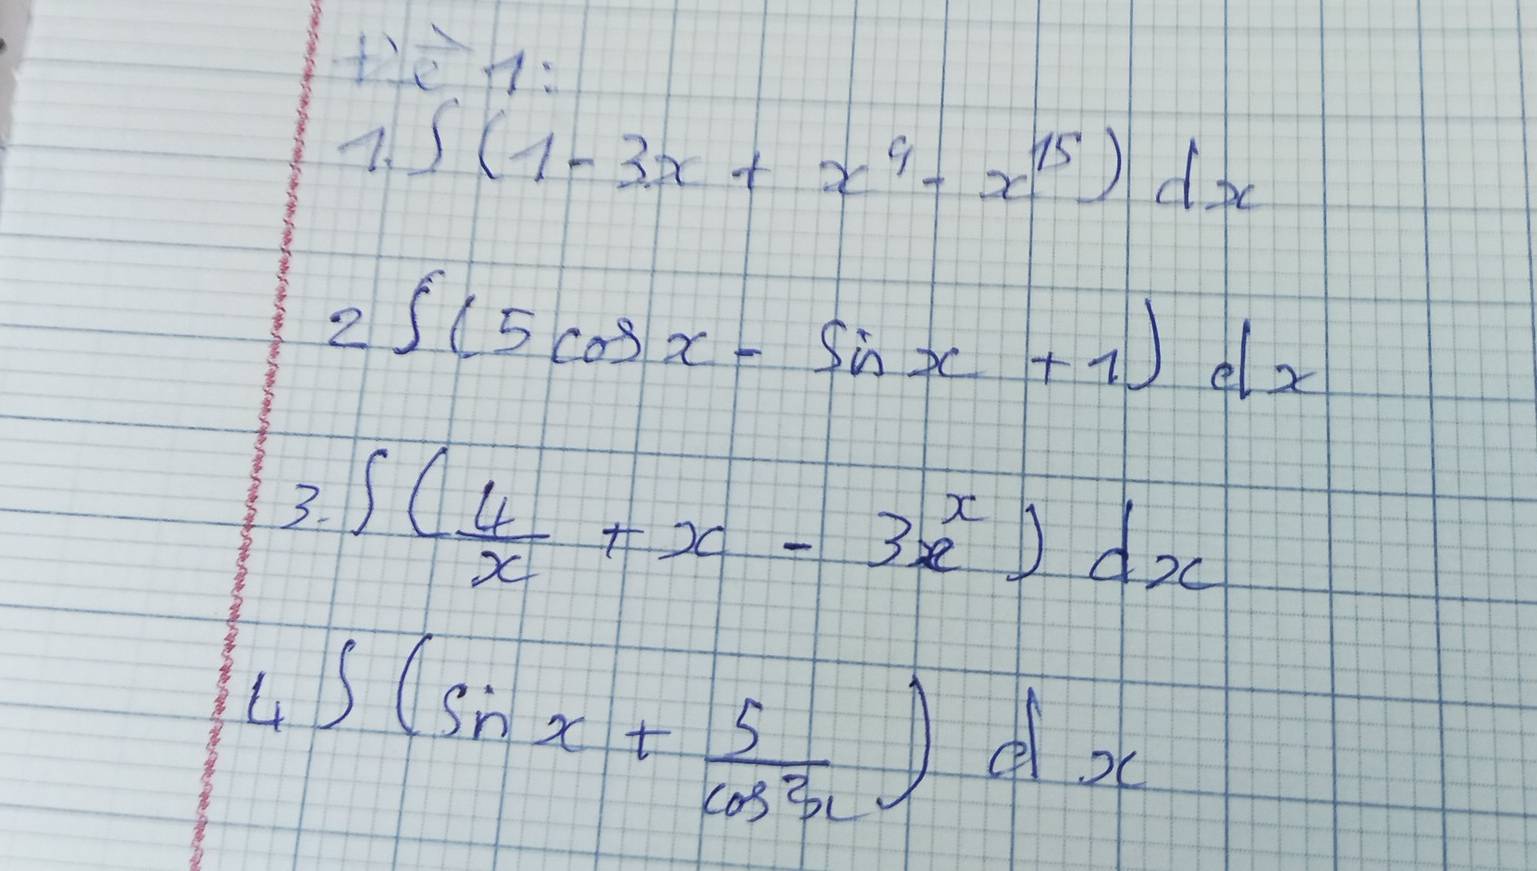 Đề 1:
1. ∫ (1 - 3x + x⁹ - x¹⁵) dx
2 ∫ (5 cos x - sin x + 1) dx
3. ∫ (4/x + x - 3eˣ) dx
4 ∫ (sin x + 5/cos²x) dx